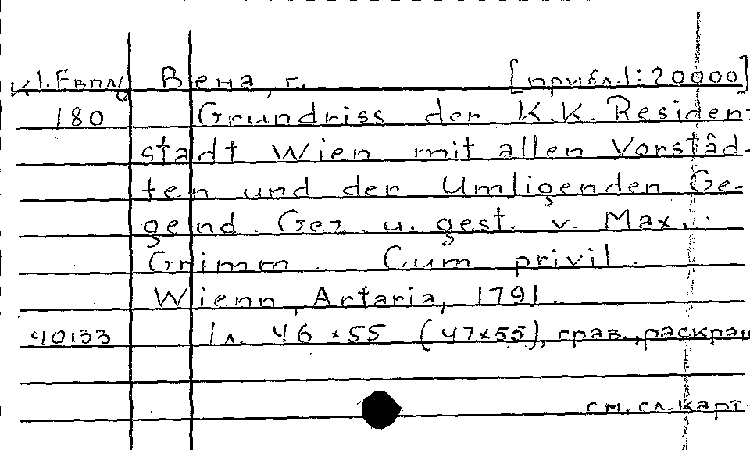 К 1. Европ Вена, г. [прибл. 1:20000]
180 Grundriss der K.K. Residen-
stadt Wien mit allen Vorstäd-
ten und der Umligenden Ge-
gend. Gez. u. gest. v. Max.
Grimm. Cum privil.
Wienn, Artaria, 1791.
40133 1 л. 46×55 (47×55), грав., раскраш
см. сл. карт